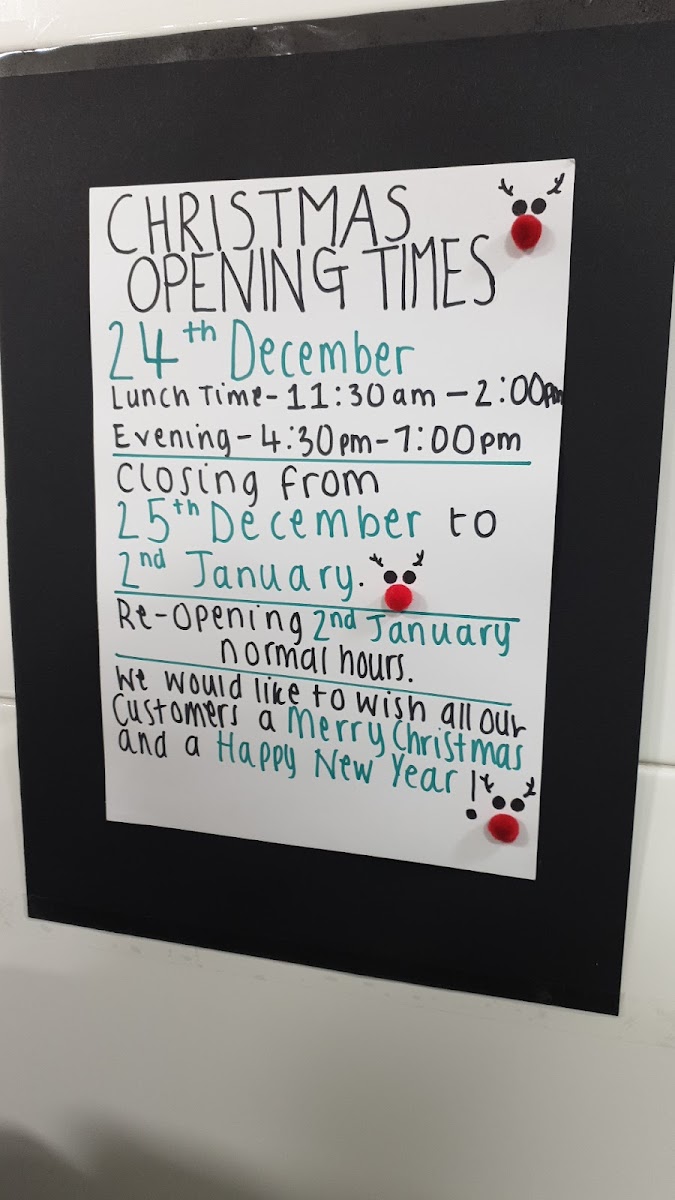 CHRISTMAS
OPENING TIMES
24th December
Lunch Time - 11:30am - 2:00pm
Evening - 4:30pm - 7:00pm
Closing from
25th December to
2nd January.
Re-opening 2nd January
normal hours.
We would like to wish all our
Customers a Merry Christmas
and a Happy New Year!